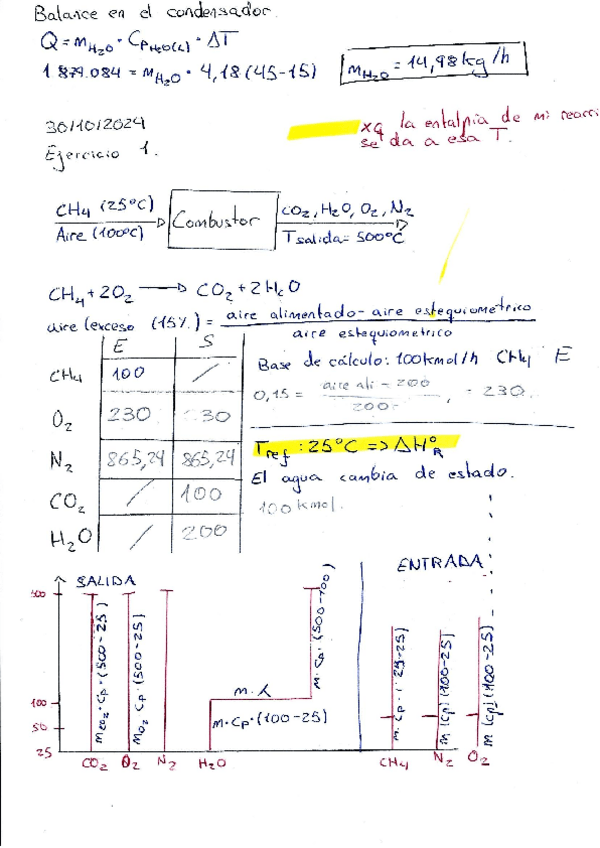 Balance en el condensador.
Q = m H2O · Cp H2O(L) · ΔT
1 879.084 = m H2O · 4,18 (45-15)
m H2O = 14,98 kg/h
30/10/2024
xq la entalpía de mi reacci
se da a esa T.
Ejercicio 1.
CH4 (25ºC)
Aire (100ºC)
Combustor
CO2, H2O, O2, N2
Tsalida = 500ºC
CH4 + 2O2 → CO2 + 2H2O
aire (exceso (15%) = aire alimentado - aire estequiometrico
aire estequiometrico
E S
CH4 100 /
O2 230 30
N2 865,24 865,24
CO2 / 100
H2O / 200
Base de cálculo: 100 kmol/h CH4 E
0,15 = aire ali - 200
200
230
Tref : 25ºC => ΔHºR
El agua cambia de estado.
100 kmol.
SALIDA
500
100
50
25
mCO2 · Cp · (500-25)
mO2 Cp · (500-25)
m · λ
m · Cp · (100-25)
m · Cp · (500-100)
CO2 O2 N2 H2O
ENTRADA
m · Cp · (25-25)
m (Cp) (100-25)
m (Cp) (100-25)
CH4 N2 O2